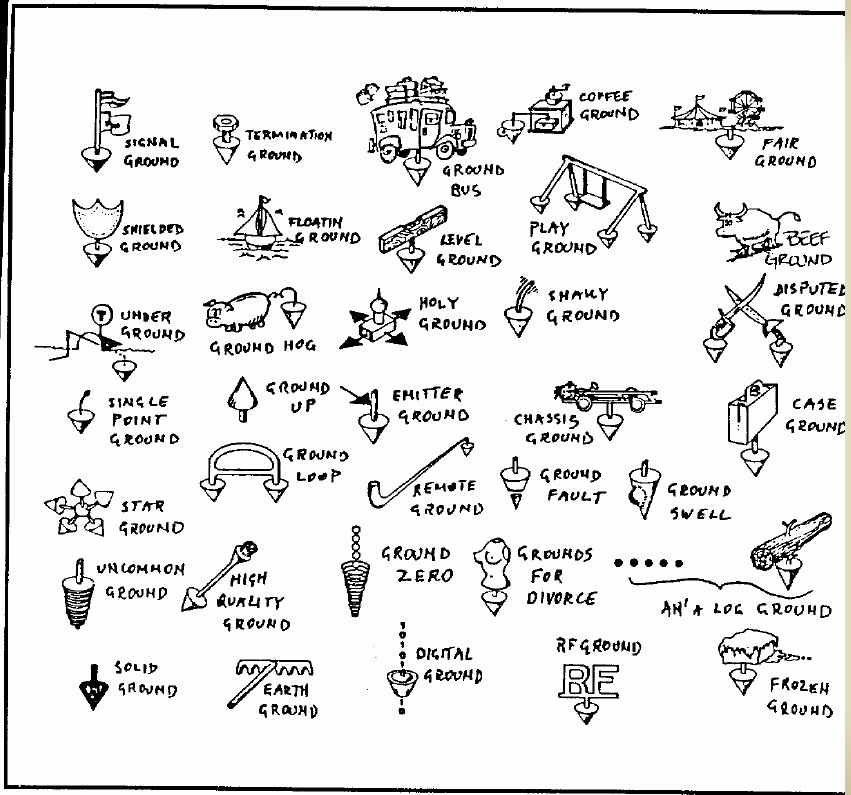 SIGNAL
GROUND
TERMINATION
GROUND
GROUND
BUS
COFFEE
GROUND
FAIR
GROUND
SHIELDED
GROUND
FLOATIN
GROUND
LEVEL
GROUND
PLAY
GROUND
BEEF
GROUND
T
UNDER
GROUND
GROUND HOG
HOLY
GROUND
SHAKY
GROUND
DISPUTED
GROUND
SINGLE
POINT
GROUND
GROUND
UP
EMITTER
GROUND
CHASSIS
GROUND
CASE
GROUND
STAR
GROUND
GROUND
LOOP
REMOTE
GROUND
GROUND
FAULT
GROUND
SWELL
UNCOMMON
GROUND
HIGH
QUALITY
GROUND
GROUND
ZERO
GROUNDS
FOR
DIVORCE
AN'A LOG GROUND
SOLID
GROUND
EARTH
GROUND
1
0
1
0
DIGITAL
GROUND
RF GROUND
RF
FROZEN
GROUND